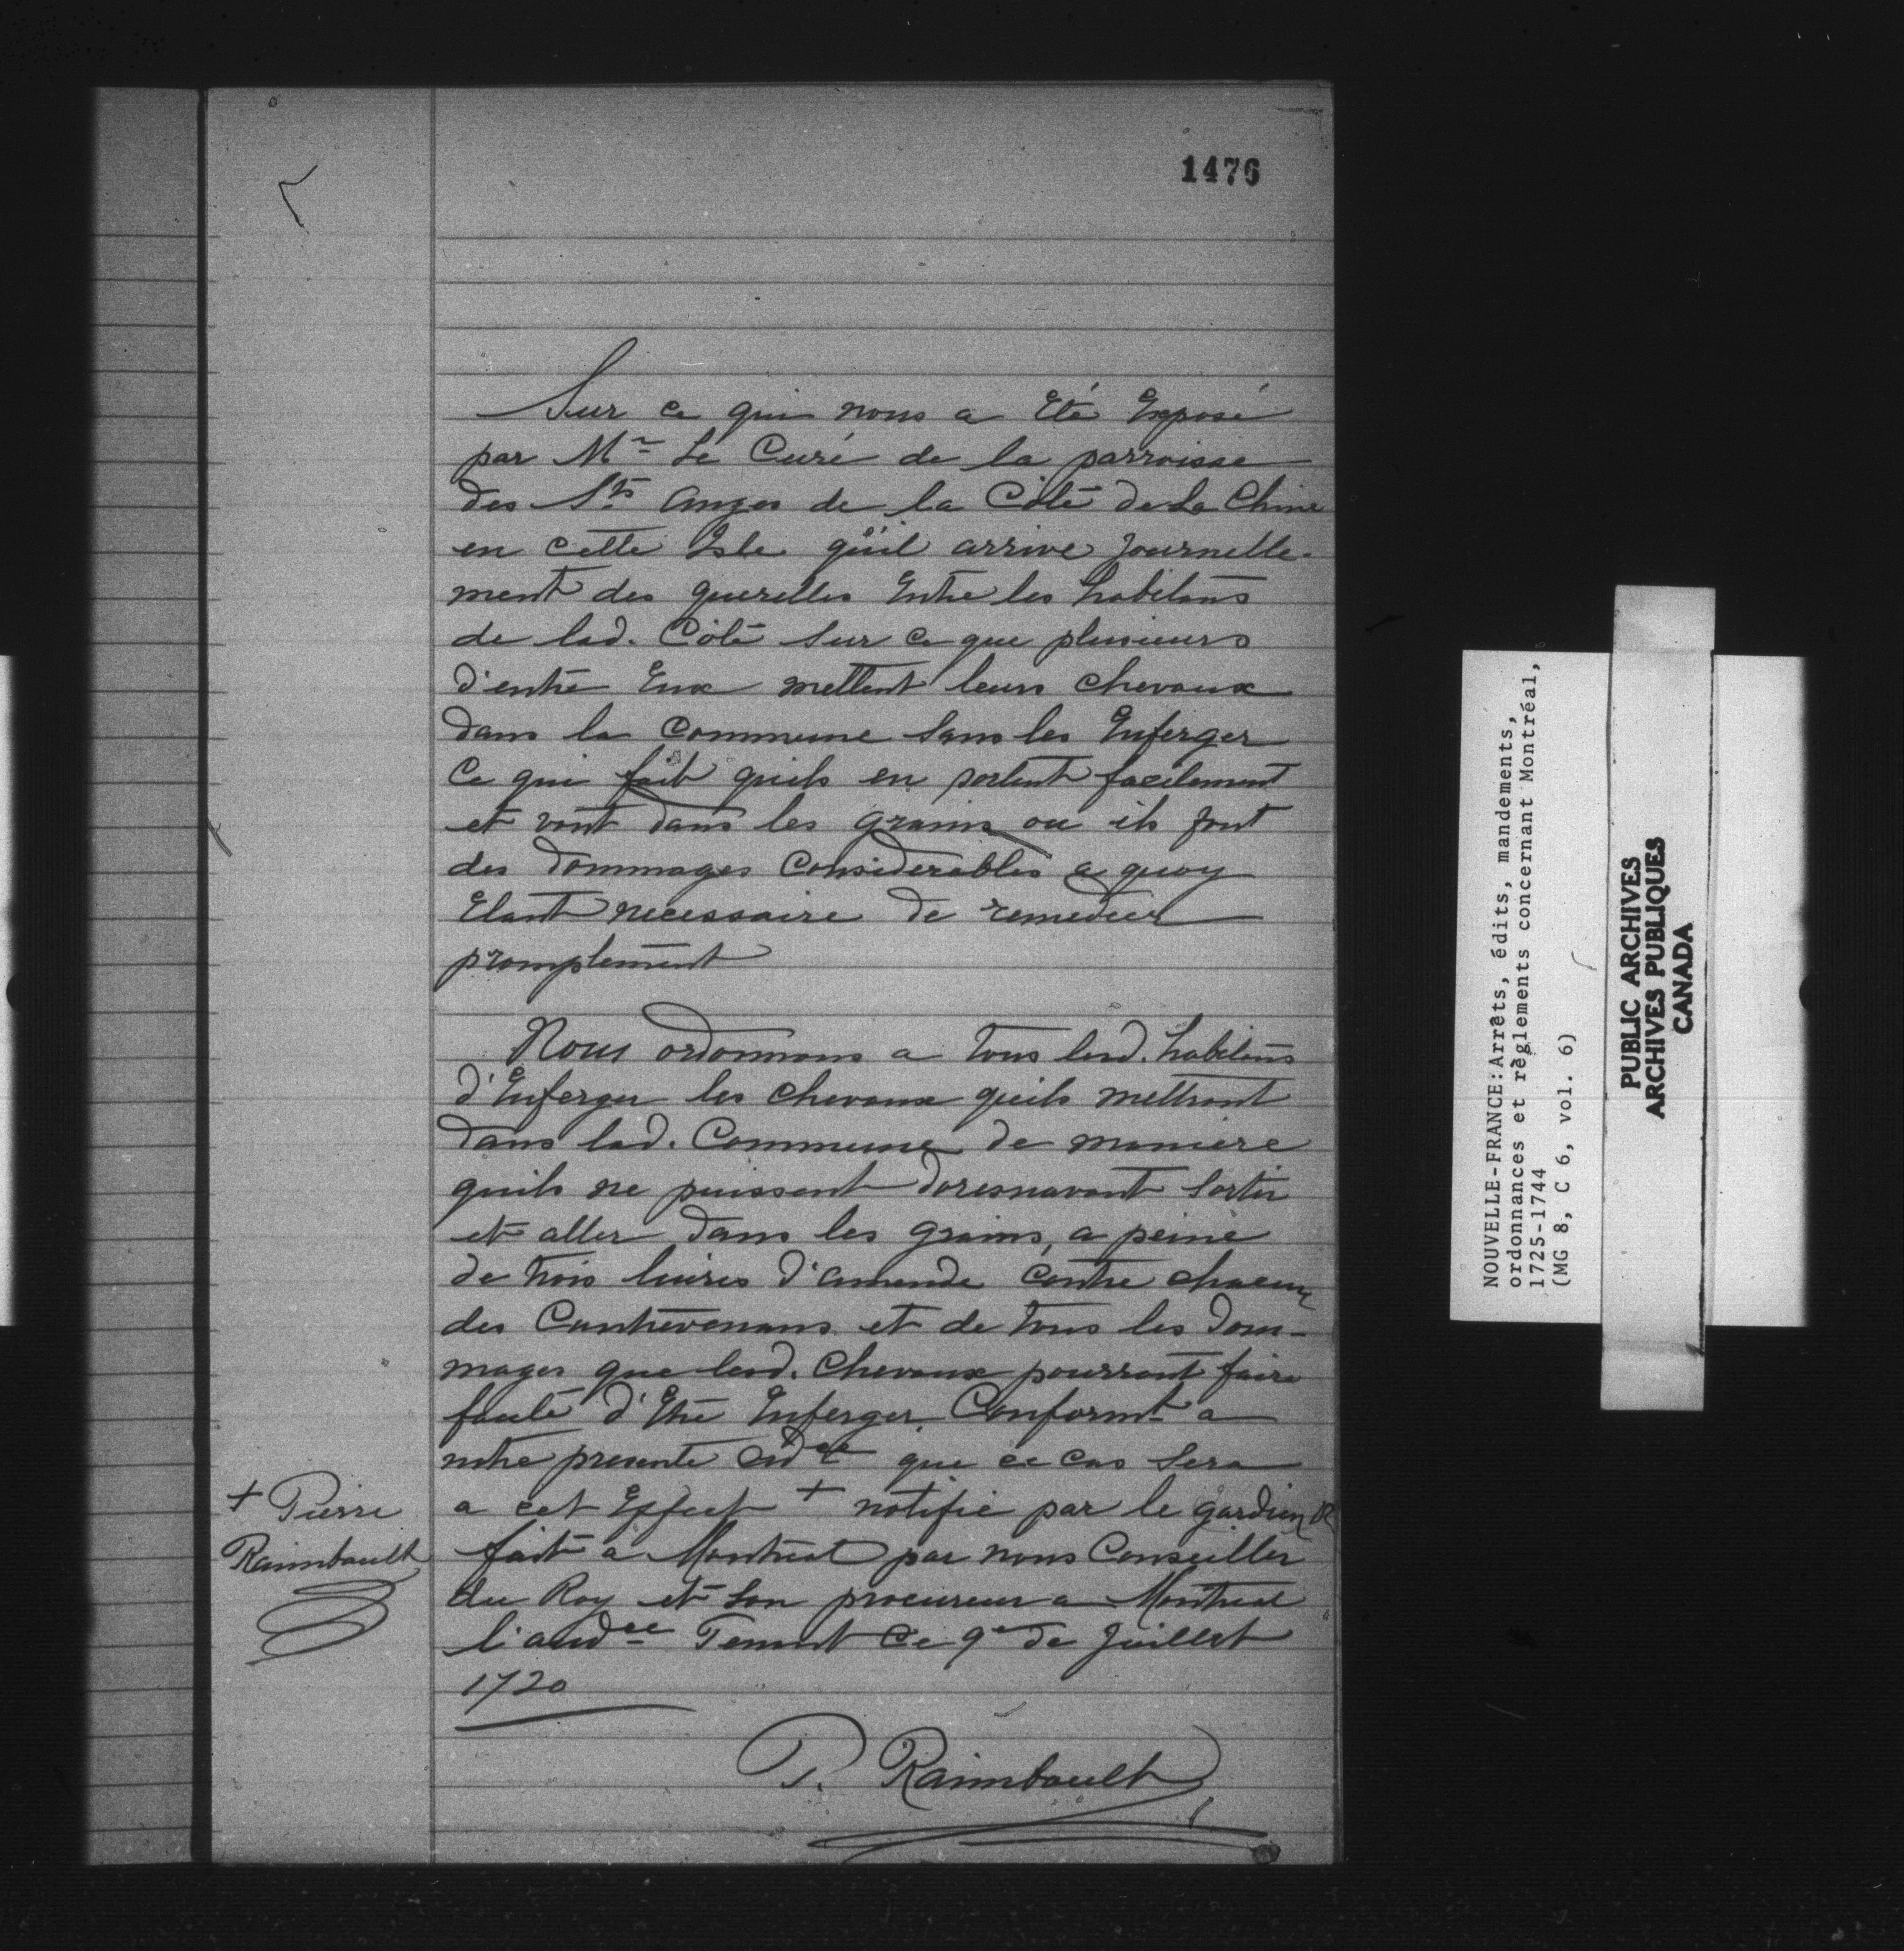 1476
Sur ce qui nous a Eté Exposé
par Mr Le Curé de la parroisse
des Sts anges de la Côté De La Chine
en cette Isle qu'il arrive Journelle-
ment des querelles Entre les habitans
de lad. Côté sur ce que plusieurs
d'entre Eux mettent leurs chevaux
dans la Commune sans les Enferger
Ce qui fait quils en sortent facilement
et vont dans les grains ou ils font
des dommages Considerables a quoy
Etant necessaire de remedier
promptement
Nous ordonnons a tous lesd. habitans
d'Enferger les chevaux quils mettront
dans lad. Commune de maniere
quils ne puissent doresnavant sortir
et aller dans les grains, a peine
de trois livres d'amende contre chacun
des Contrevenans et de tous les dom-
mages que lesd. Chevaux pourront faire
faute d'Etre Enferger Conformt a
notre presente Ordce que ce cas sera
a cet Effect + notifié par le gardien
+ Pierre
Raimbault
fait a Montreal par nous Conseiller
du Roy et son procureur a Montreal
l'audce Tenant Ce 9e de Juillet
1720
P. Raimbault
NOUVELLE-FRANCE: Arrêts, édits, mandements,
ordonnances et règlements concernant Montréal,
1725-1744
(MG 8, C 6, vol. 6)
PUBLIC ARCHIVES
ARCHIVES PUBLIQUES
CANADA